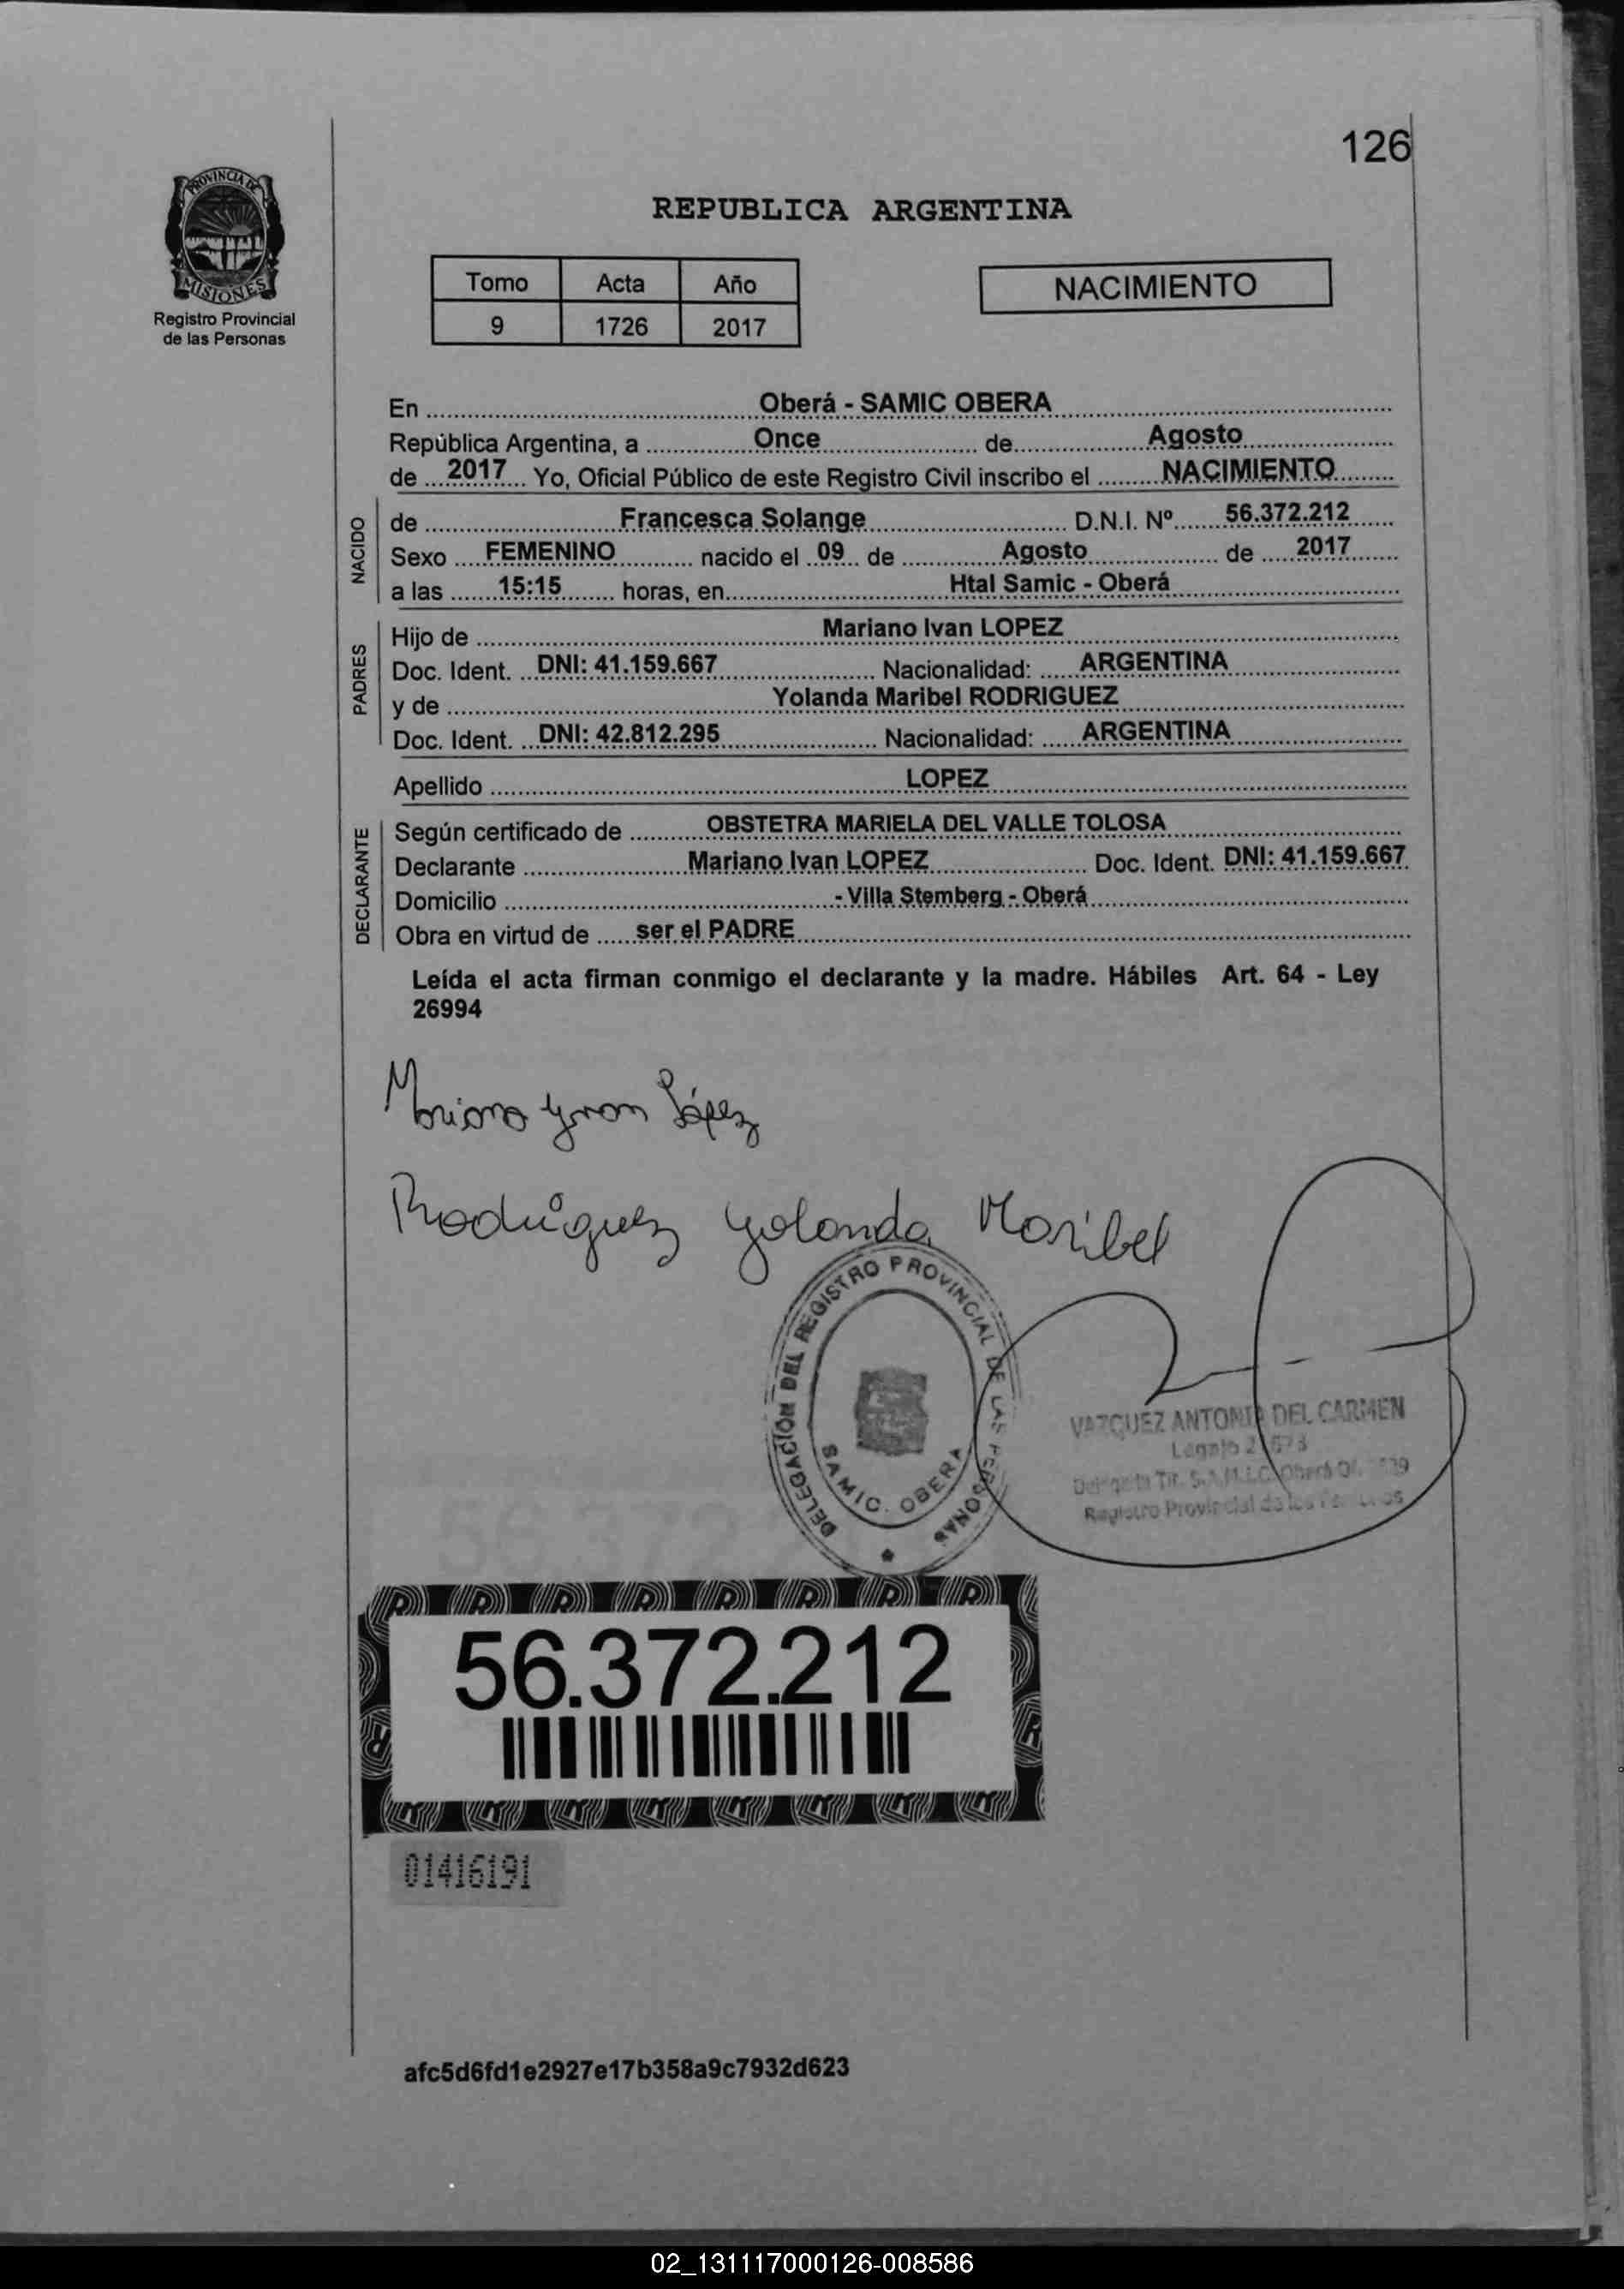 126
PROVINCIA DE
MISIONES
Registro Provincial
de las Personas
REPUBLICA ARGENTINA
Tomo Acta Año
9 1726 2017
NACIMIENTO
En Oberá - SAMIC OBERA
República Argentina, a Once de Agosto
de 2017 Yo, Oficial Público de este Registro Civil inscribo el NACIMIENTO
NACIDO
de Francesca Solange D.N.I. Nº 56.372.212
Sexo FEMENINO nacido el 09 de Agosto de 2017
a las 15:15 horas, en Htal Samic - Oberá
PADRES
Hijo de Mariano Ivan LOPEZ
Doc. Ident. DNI: 41.159.667 Nacionalidad: ARGENTINA
y de Yolanda Maribel RODRIGUEZ
Doc. Ident. DNI: 42.812.295 Nacionalidad: ARGENTINA
Apellido LOPEZ
DECLARANTE
Según certificado de OBSTETRA MARIELA DEL VALLE TOLOSA
Declarante Mariano Ivan LOPEZ Doc. Ident. DNI: 41.159.667
Domicilio - Villa Stemberg - Oberá
Obra en virtud de ser el PADRE
Leída el acta firman conmigo el declarante y la madre. Hábiles Art. 64 - Ley
26994
Mariano Yvan López
Rodríguez Yolanda Maribel
DELEGACIÓN DEL REGISTRO PROVINCIAL DE LAS PERSONAS
SAMIC. OBERA
VAZQUEZ ANTONIA DEL CARMEN
Legajo
Tit. S.A.M.I.C. Oberá
Registro Provincial de las
56.372.2
56.372.212
01416191
afc5d6fd1e2927e17b358a9c7932d623
02_131117000126-008586